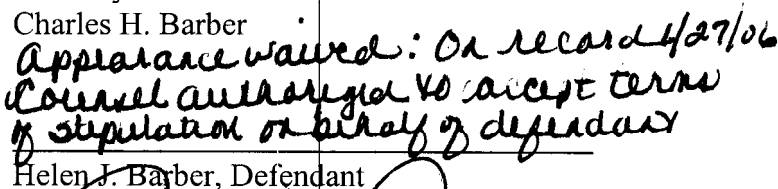 Charles H. Barber
Appearance waived: On record 4/27/06
Counsel authorized to accept terms
of stipulation on behalf of defendant
Helen J. Barber, Defendant